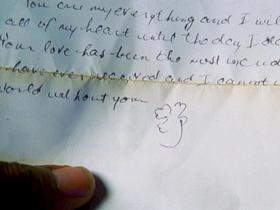 You are my everything and I will
all of my heart until the day I die
Your love has been the most inc
have ever received and I cannot
World without you